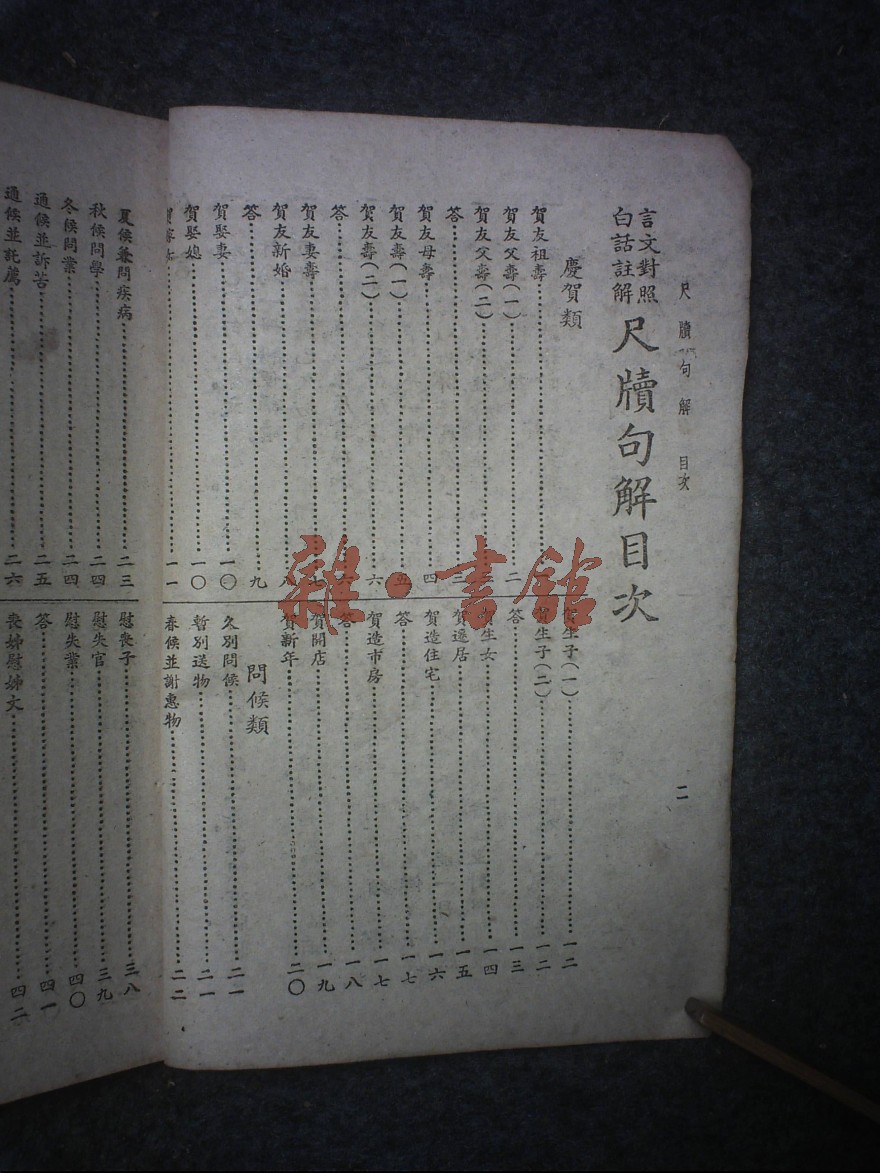 尺牘句解 目次 二
言文對照
白話註解
尺牘句解目次
慶賀類
賀友祖壽
賀友父壽(一)……二
賀友父壽(二)
答……三
賀友母壽……四
賀友壽(一)……五
賀友壽(二)……六
答……六
賀友妻壽……七
賀友新婚……八
答……九
賀娶妻……一〇
賀娶媳……一〇
……一一
賀生子(一)……一二
賀生子(二)……一二
答……一三
賀生女……一四
賀遷居……一五
賀造住宅……一六
答……一七
賀造市房……一七
答……一八
賀開店……一九
賀新年……二〇
問候類
久別問候……二一
暫別送物……二一
春候並謝惠物……二二
夏候兼問疾病……二三
秋候問學……二四
冬候問業……二四
通候並訴苦……二五
通候並託薦……二六
慰喪子……三八
慰失官……三九
慰失業……四〇
答……四一
喪姊慰姊文……四二
雜·書館